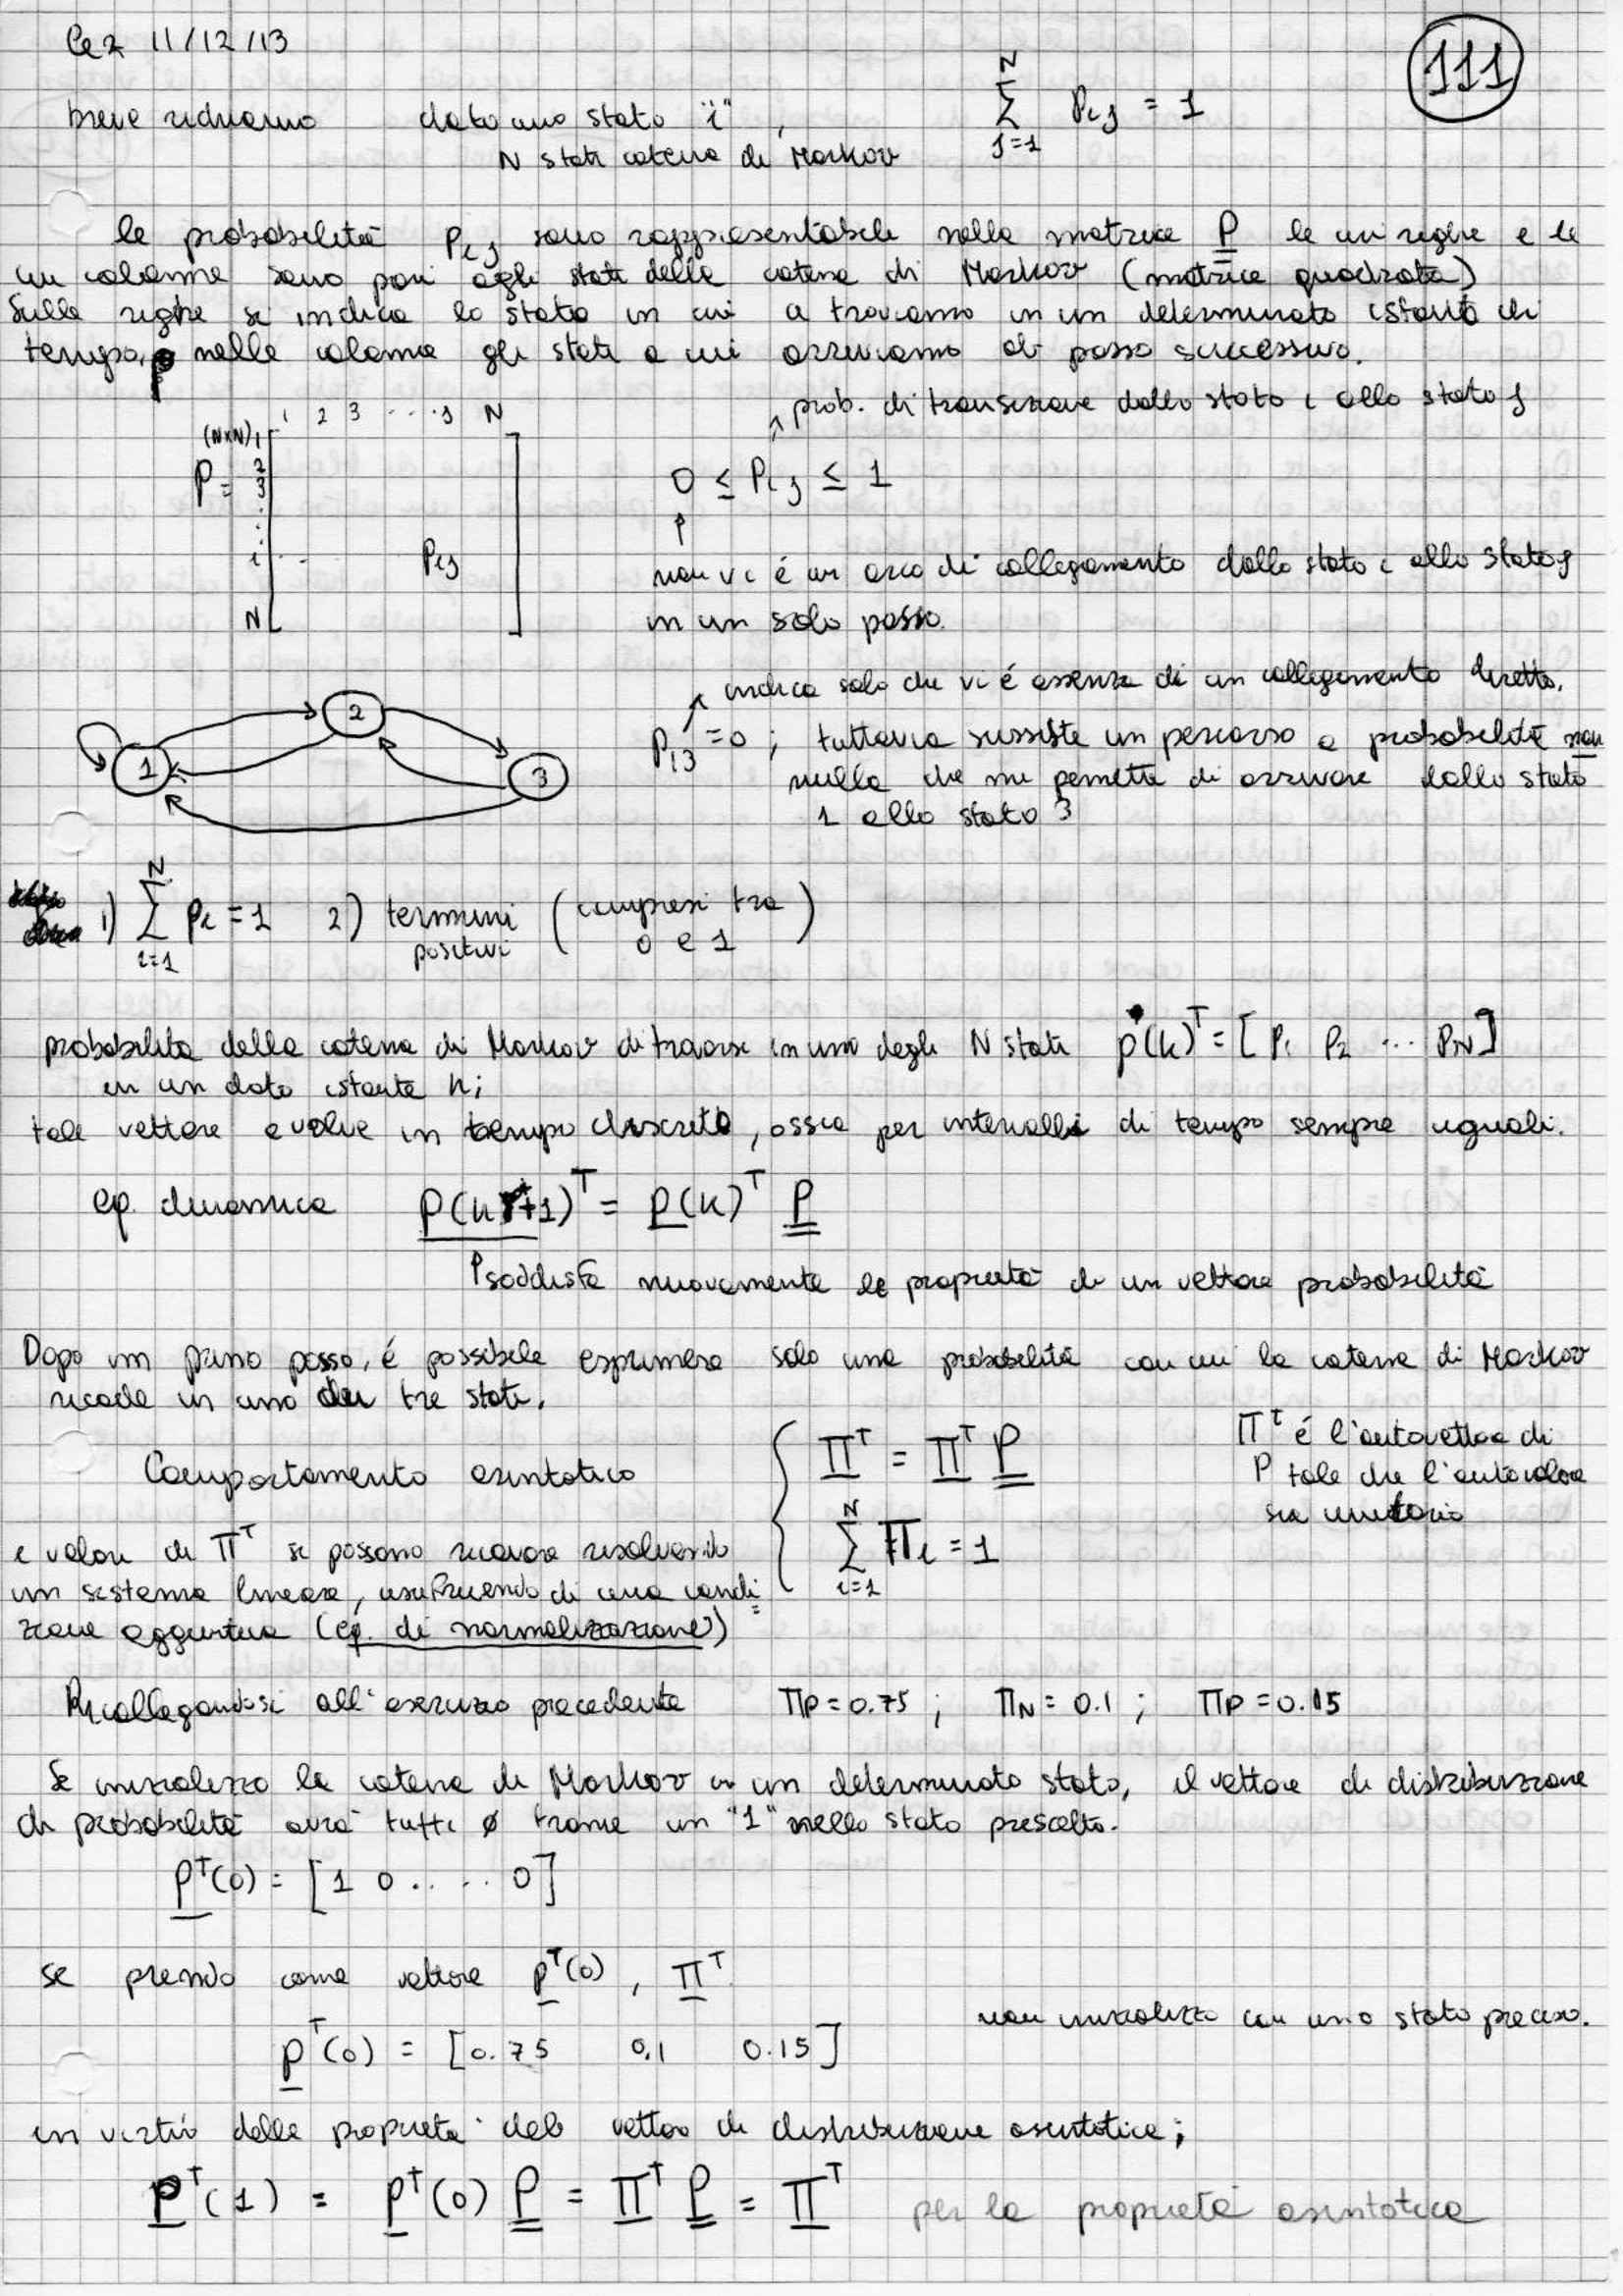 Lez 11/12/13
111
breve richiamo dato uno stato "i", \sum_{j=1}^{N} P_{ij} = 1
N stati catena di Markov
le probabilità P_{ij} sono rappresentabili nella matrice P le cui righe e le
cui colonne sono pari agli stati della catena di Markov (matrice quadrata)
Sulle righe si indica lo stato in cui ci troviamo in un determinato istante di
tempo, nelle colonne gli stati a cui arriviamo al passo successivo.
1 2 3 ... j N
prob. di transizione dallo stato i allo stato j
(N×N) 1
P = 2
3
0 ≤ P_{ij} ≤ 1
i P_{ij}
non vi è un arco di collegamento dallo stato i allo stato j
N
in un solo passo.
indica solo che vi è assenza di un collegamento diretto.
1 2 3
P_{13} = 0 ; tuttavia sussiste un percorso a probabilità non
nulla che mi permette di arrivare dallo stato
1 allo stato 3
1) \sum_{i=1}^{N} P_i = 1 2) termini positivi (compresi tra 0 e 1)
probabilità della catena di Markov di trovarsi in uno degli N stati p(k)^T = [P_1 P_2 ... P_N]
in un dato istante k;
tale vettore evolve in tempo discreto, ossia per intervalli di tempo sempre uguali.
eq. dinamica P(k+1)^T = P(k)^T P
soddisfa nuovamente le proprietà di un vettore probabilità
Dopo un primo passo, è possibile esprimere solo una probabilità con cui la catena di Markov
ricade in uno dei tre stati.
Comportamento asintotico
Π^T = Π^T P
\sum_{i=1}^{N} Π_i = 1
Π^T è l'autovettore di
P tale che l'autovalore
sia unitario
i valori di Π^T si possono ricavare risolvendo
un sistema lineare, usufruendo di una condi=
zione aggiuntiva (eq. di normalizzazione)
Ricollegandosi all'esercizio precedente Π_P = 0.75 ; Π_N = 0.1 ; Π_P = 0.15
Se inizializzo la catena di Markov in un determinato stato, il vettore di distribuzione
di probabilità avrà tutti ø tranne un "1" nello stato prescelto.
P^T(0) = [1 0 ..... 0]
se prendo come vettore p^T(0), Π^T
non inizializzo con uno stato preciso.
p^T(0) = [0.75 0,1 0.15]
in virtù delle proprietà del vettore di distribuzione asintotica;
P^T(1) = P^T(0) P = Π^T P = Π^T per la proprietà asintotica